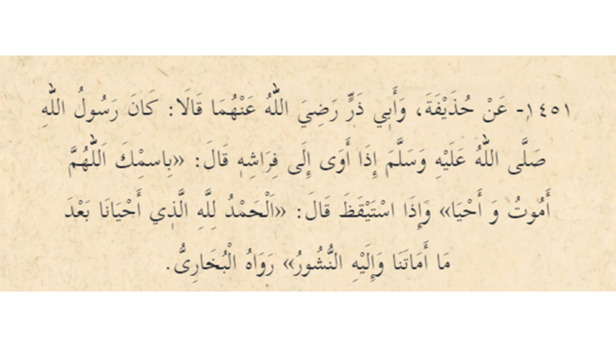 ١٤٥١- عَنْ حُذَيْفَةَ، وَأَبِي ذَرٍّ رَضِيَ اللهُ عَنْهُمَا قَالَا: كَانَ رَسُولُ اللهِ
صَلَّى اللهُ عَلَيْهِ وَسَلَّمَ إِذَا أَوَى إِلَى فِرَاشِهِ قَالَ: «بِاسمِكَ اَللَّهُمَّ
أَمُوتُ وَ أَحْيَا» وَإِذَا اسْتَيْقَظَ قَالَ: «اَلْحَمْدُ لِلَّهِ الَّذِي أَحْيَانَا بَعْدَ
مَا أَمَاتَنا وَإِلَيْهِ النُّشُورُ» رَوَاهُ الْبُخَارِىُّ.